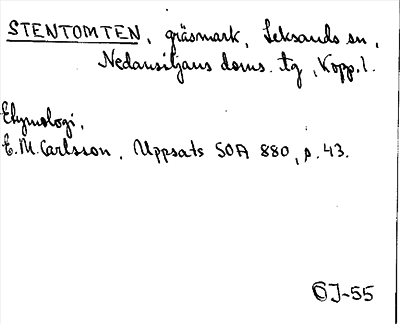 STENTOMTEN, gräsmark, Leksands sn,
Nedansiljans doms. tg, Kopp. l.
Etymologi,
E. M. Carlsson, Uppsats SOA 880, s. 43.
GJ-55